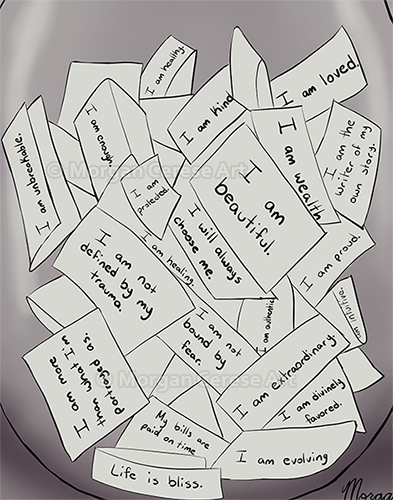 I am healthy.
I am loved.
I am kind
I am unbreakable.
I am enough.
© Morgan Cerese Art
I am
protected.
I am wealth
I am the
writer of my
own story.
I am
beautiful.
I will always
choose me.
I am healing.
I am not
defined by my
trauma.
I am proud.
I am authentic
I am intuitive.
I am not
bound by
fear.
I am more
than what I'm
portrayed as
I am extraordinary.
© Morgan Cerese Art
I am divinely
favored.
My bills are
paid on time.
I am evolving
Life is bliss.
Morgan